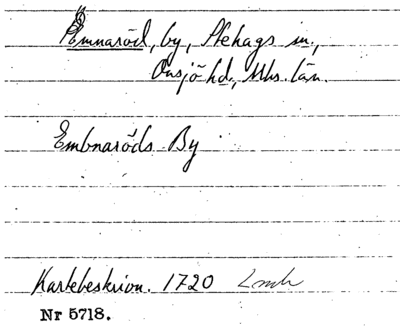 Ämnaröd, by, Stehags sn,
Onsjö hd, Mhs. län.
Embnaröds By
Kartebeskrivn. 1720 Lmk
Nr 5718.